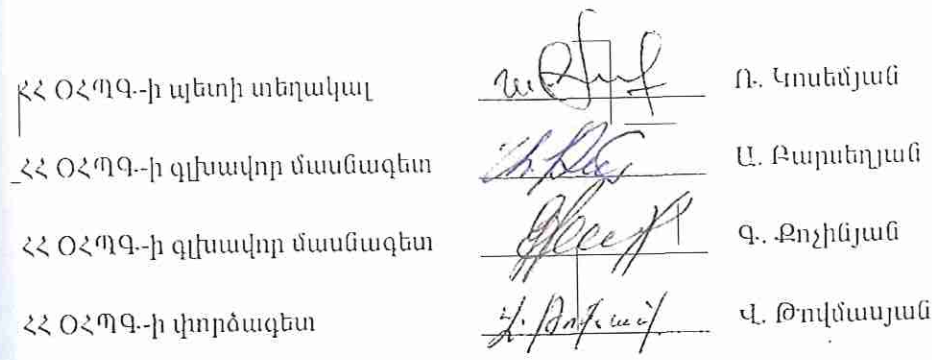 ՀՀ ՕՀՊԳ-ի պետի տեղակալ Ռ. Կոսեմյան
ՀՀ ՕՀՊԳ-ի գլխավոր մասնագետ Ա. Բարսեղյան
ՀՀ ՕՀՊԳ-ի գլխավոր մասնագետ Գ. Քոչինյան
ՀՀ ՕՀՊԳ-ի փորձագետ Վ. Թովմասյան